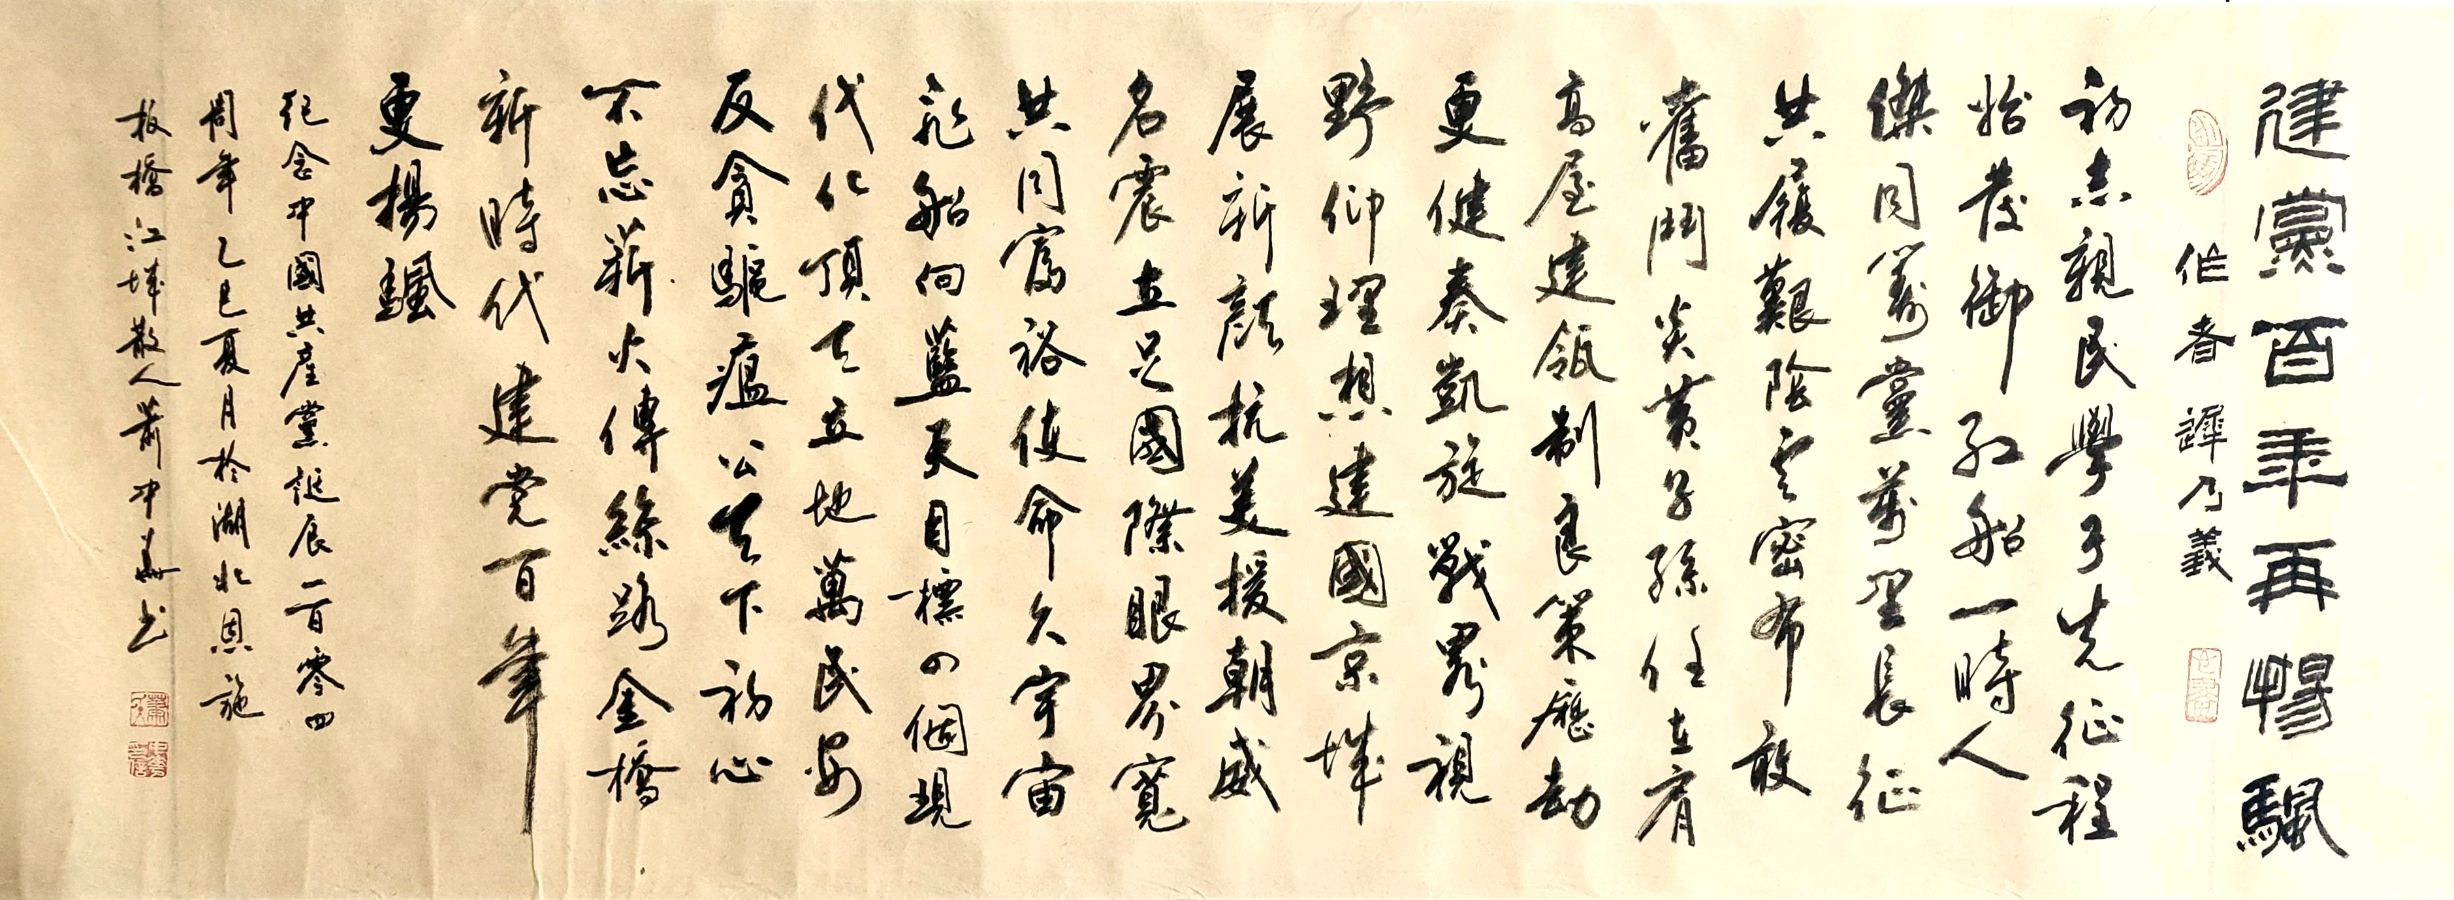 建黨百年再暢颿
作者 乃義
初志親民學子先征程
始發御紅船一時人
傑同籌黨萬里長征
共履艱陰雲密布敢
奮鬥炎黃子孫任在肩
高屋建瓴制良策歷劫
更健奏凱旋戰略視
野仰理想建國京城
展新顏抗美援朝威
名震立足國際眼界寬
共同富裕使命久宇宙
飛船向藍天目標四個現
代化頂天立地萬民安
反貪驅瘟公天下初心
不忘薪火傳絲路金橋
新時代建党百年
更揚颿
紀念中國共產黨誕辰一百零四
周年乙巳夏月於湖北恩施
板橋江城散人蕭冲華书